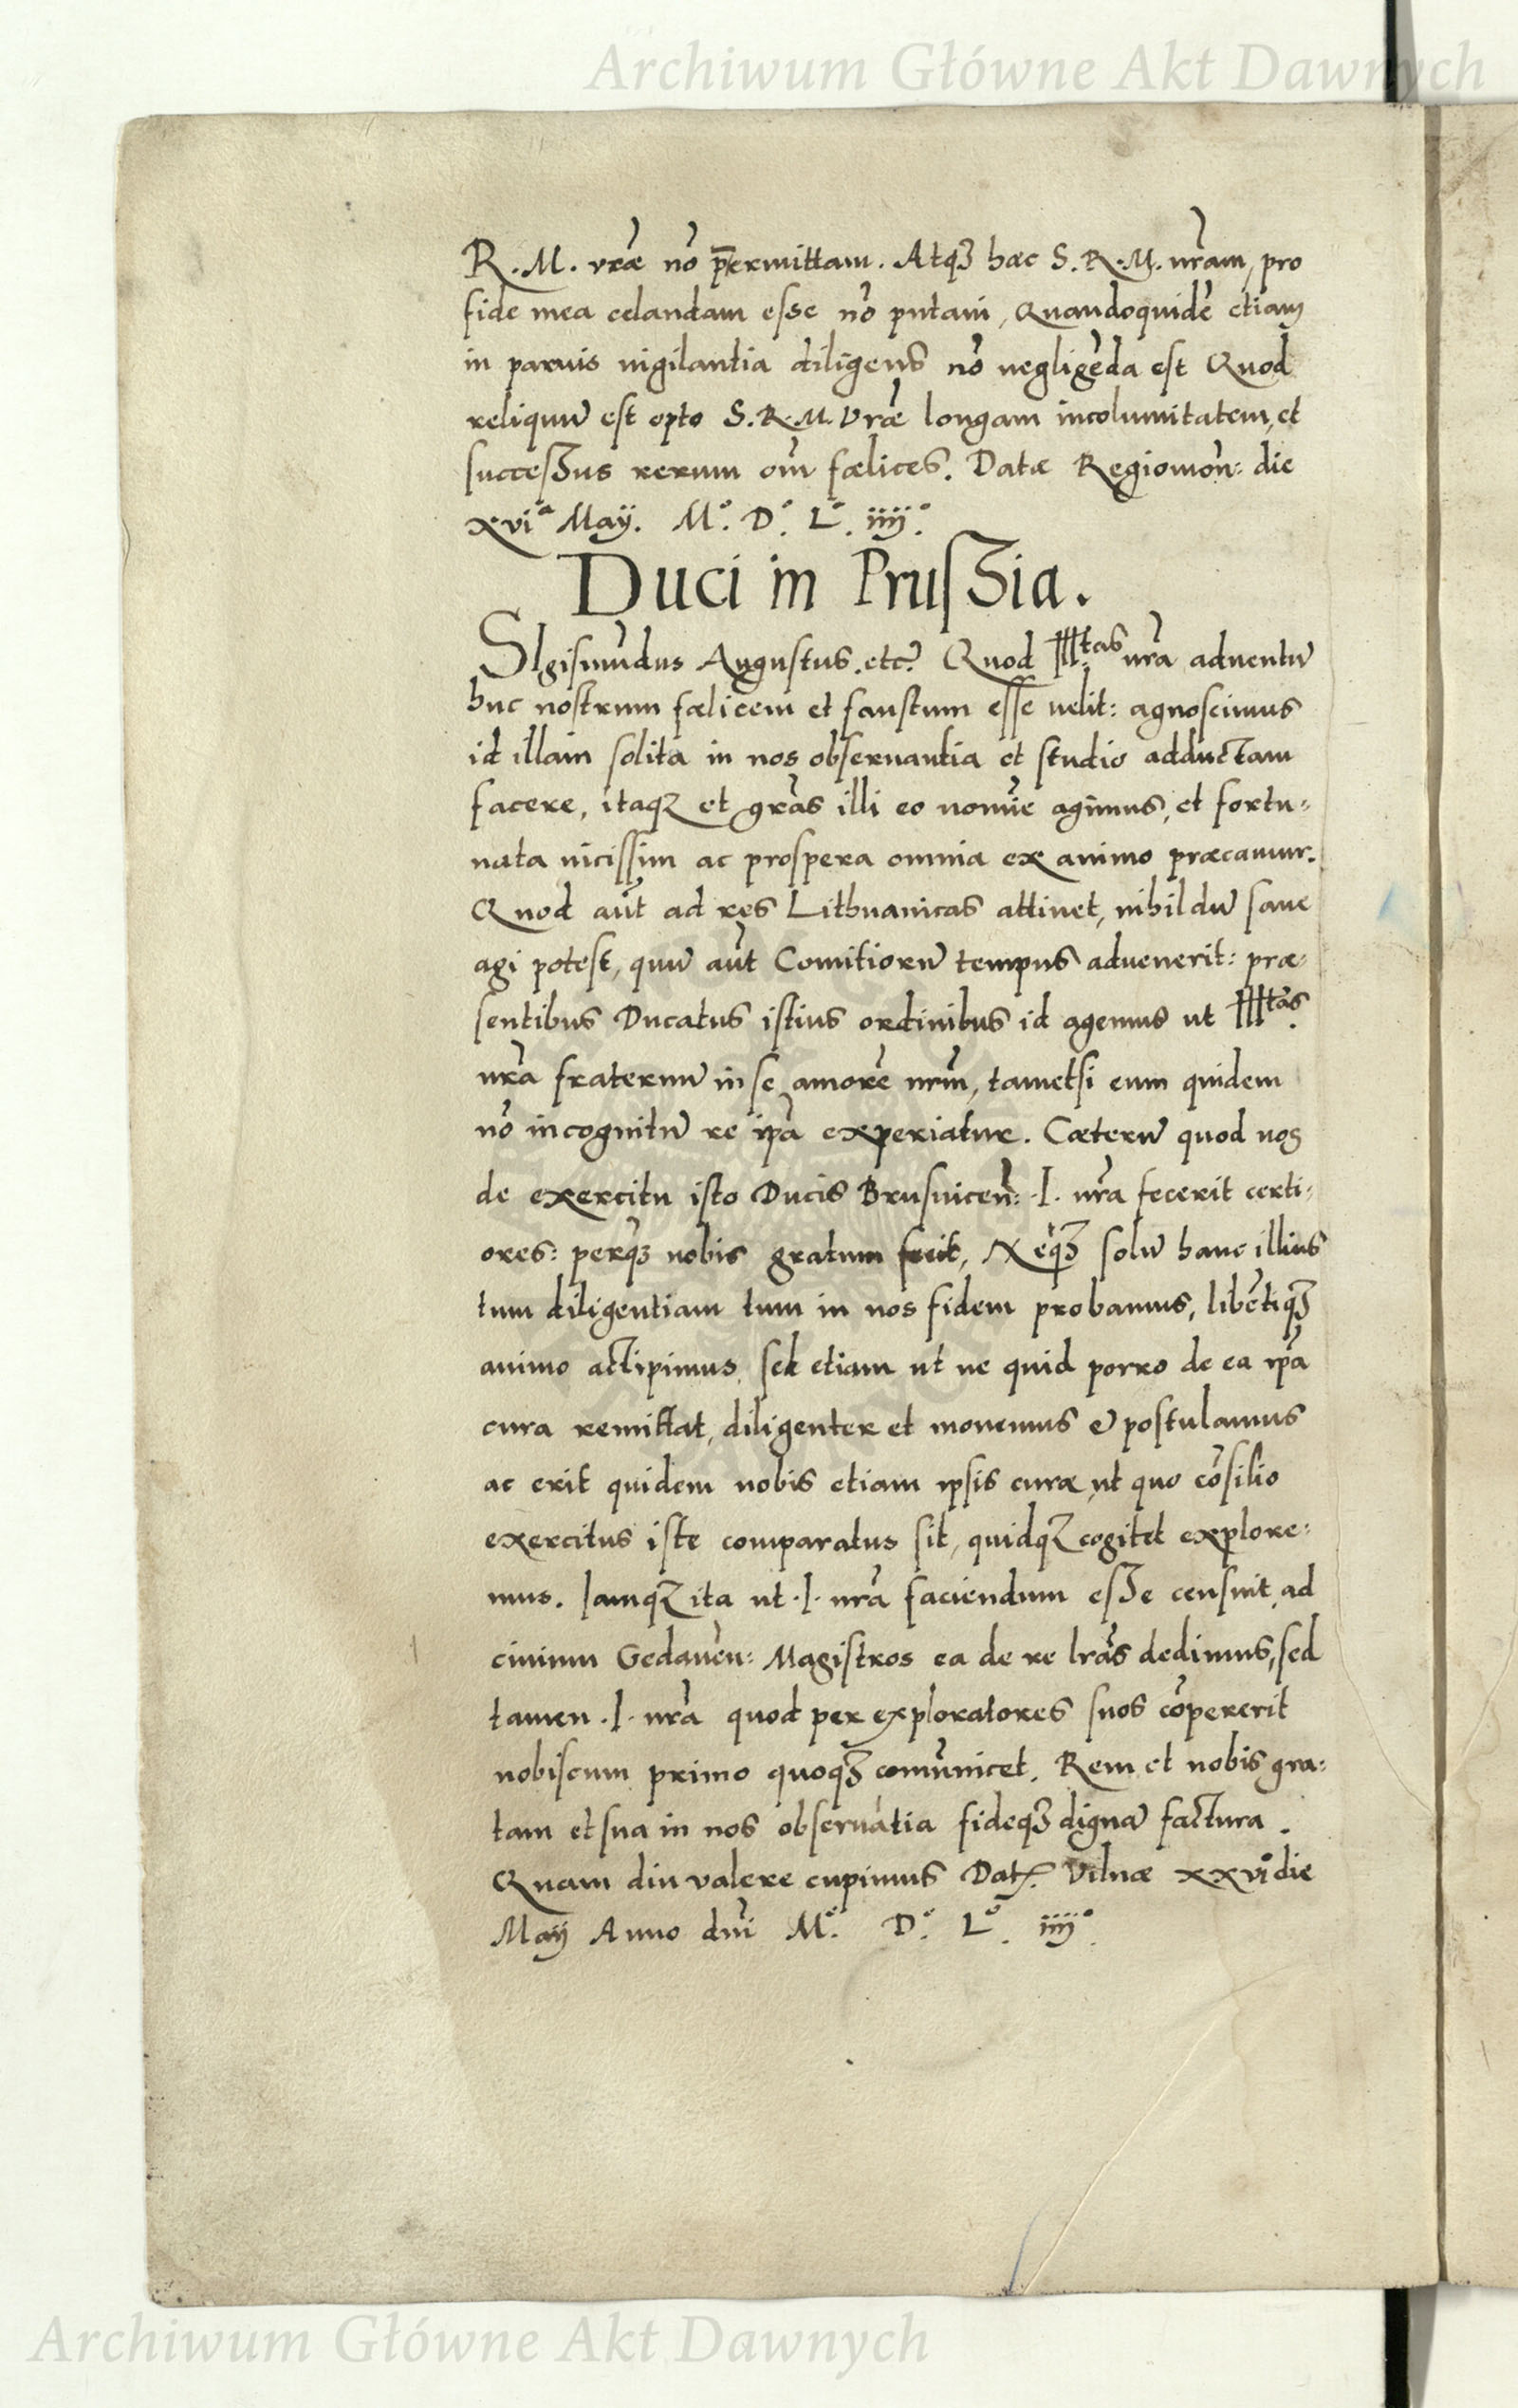 Archiwum Główne Akt Dawnych
R. M. vræ nõ p̄termittam. Atqꝫ hæc S. R. M. uram, pro
fide mea celandam esse nõ putaui, Quandoquidẽ etiam
in paruis uigilantia diligens nõ negligẽda est Quod
reliquũ est opto S. R. M. Vræ longam incolumitatem, et
successus rerum oim̃ fœlices. Datæ Regiomoñ: die
xviᵃ Maÿ. Mº. Dº. Lº. iiijº.
Duci in Prussia.
SIgismũdus Augustus. etc̃. Quod Illtas. ura aduentũ
huc nostrum fœlicem et faustum esse uelit: agnoscimus
id illam solita in nos obseruantia et studio adductam
facere, itaqꝫ et grãs illi eo nomĩe agimus, et fortu-
nata uicissim ac prospera omnia ex animo præcamur.
Quod aũt ad res Lithuanicas attinet, nihil dũ sane
agi potest, quũ aũt Comitiorũ tempus aduenerit: præ-
sentibus Ducatus istius ordinibus id agemus ut Illtas.
urã fraternũ in se amorẽ nrm̃, tametsi eum quidem
nõ incognitũ re ip̃a experiatur. Cæterũ quod nos
de exercitu isto Ducis Brusuiceñ: .I. urã fecerit certi-
ores: perqꝫ nobis gratum fecit, Neqꝫ solũ hanc illius
tum diligentiam tum in nos fidem probamus, libẽtiqꝫ
animo accipimus, sed etiam ut ne quid porro de ea ip̃a
cura remittat, diligenter et monemus & postulamus
ac erit quidem nobis etiam ipsis curæ, ut quo cõsilio
exercitus iste comparatus sit, quidqꝫ cogitet explore-
mus. Iamqꝫ ita ut .I. urã faciendum esse censuit, ad
ciuium Gedaneñ: Magistros ea de re lrãs dedimus, sed
tamen .I. urã quod per exploratores suos cõpererit
nobiscum primo quoqꝫ comũnicet. Rem et nobis gra-
tam et sua in nos obseruãtia fideqꝫ dignã factura.
Quam diu valere cupimus Dat. Vilnæ xxviº die
Maÿ Anno dñi Mº. Dº. Lº. iiijº.
Archiwum Główne Akt Dawnych